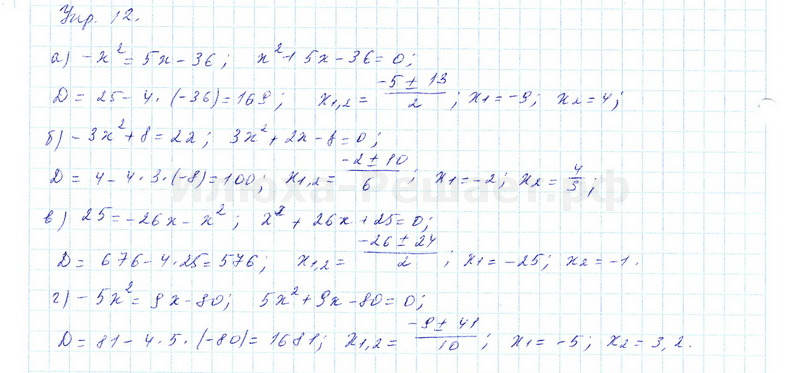 Упр. 12.
а) -x² = 5x - 36; x² + 5x - 36 = 0;
D = 25 - 4 · (-36) = 169; x₁,₂ = (-5 ± 13)/2; x₁ = -9; x₂ = 4;
б) -3x² + 8 = 2x; 3x² + 2x - 8 = 0;
D = 4 - 4 · 3 · (-8) = 100; x₁,₂ = (-2 ± 10)/6; x₁ = -2; x₂ = 4/3;
илюха-Решает.рф
в) 25 = -26x - x²; x² + 26x + 25 = 0;
D = 676 - 4 · 25 = 576; x₁,₂ = (-26 ± 24)/2; x₁ = -25; x₂ = -1.
г) -5x² = 9x - 80; 5x² + 9x - 80 = 0;
D = 81 - 4 · 5 · (-80) = 1681; x₁,₂ = (-9 ± 41)/10; x₁ = -5; x₂ = 3,2.